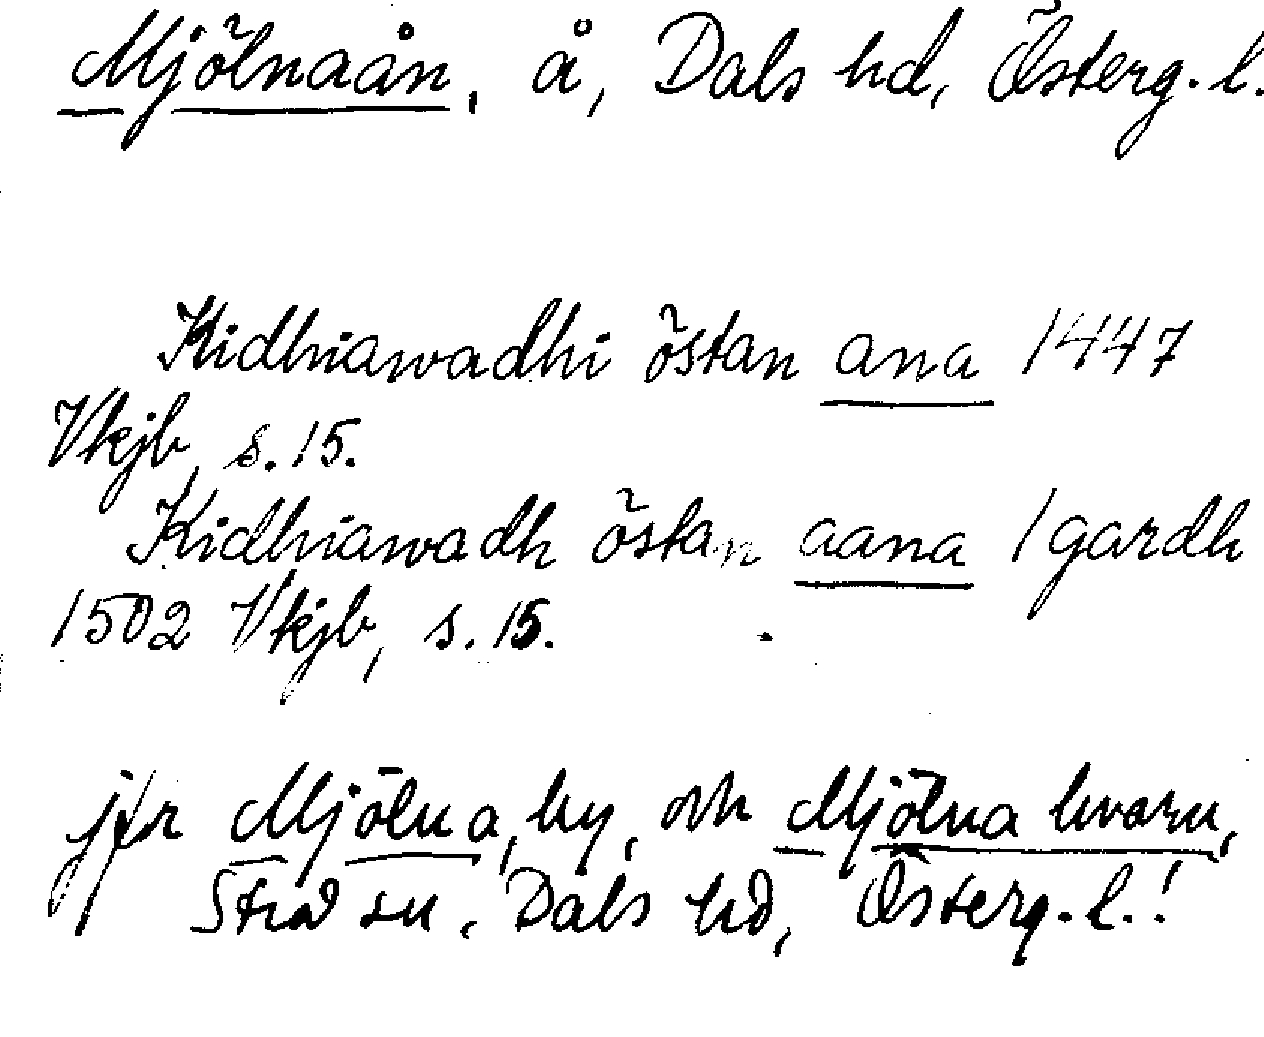 Mjölnaån, å, Dals hd, Österg. l.
Kidhiawadhi östan ana 1447
Vkjb, s. 15.
Kidhiawadh östan aana 1 gardh
1502 Vkjb, s. 15.
jfr Mjölna, by, och Mjölna kvarn,
Stra sn, Dals hd, Österg. l.!